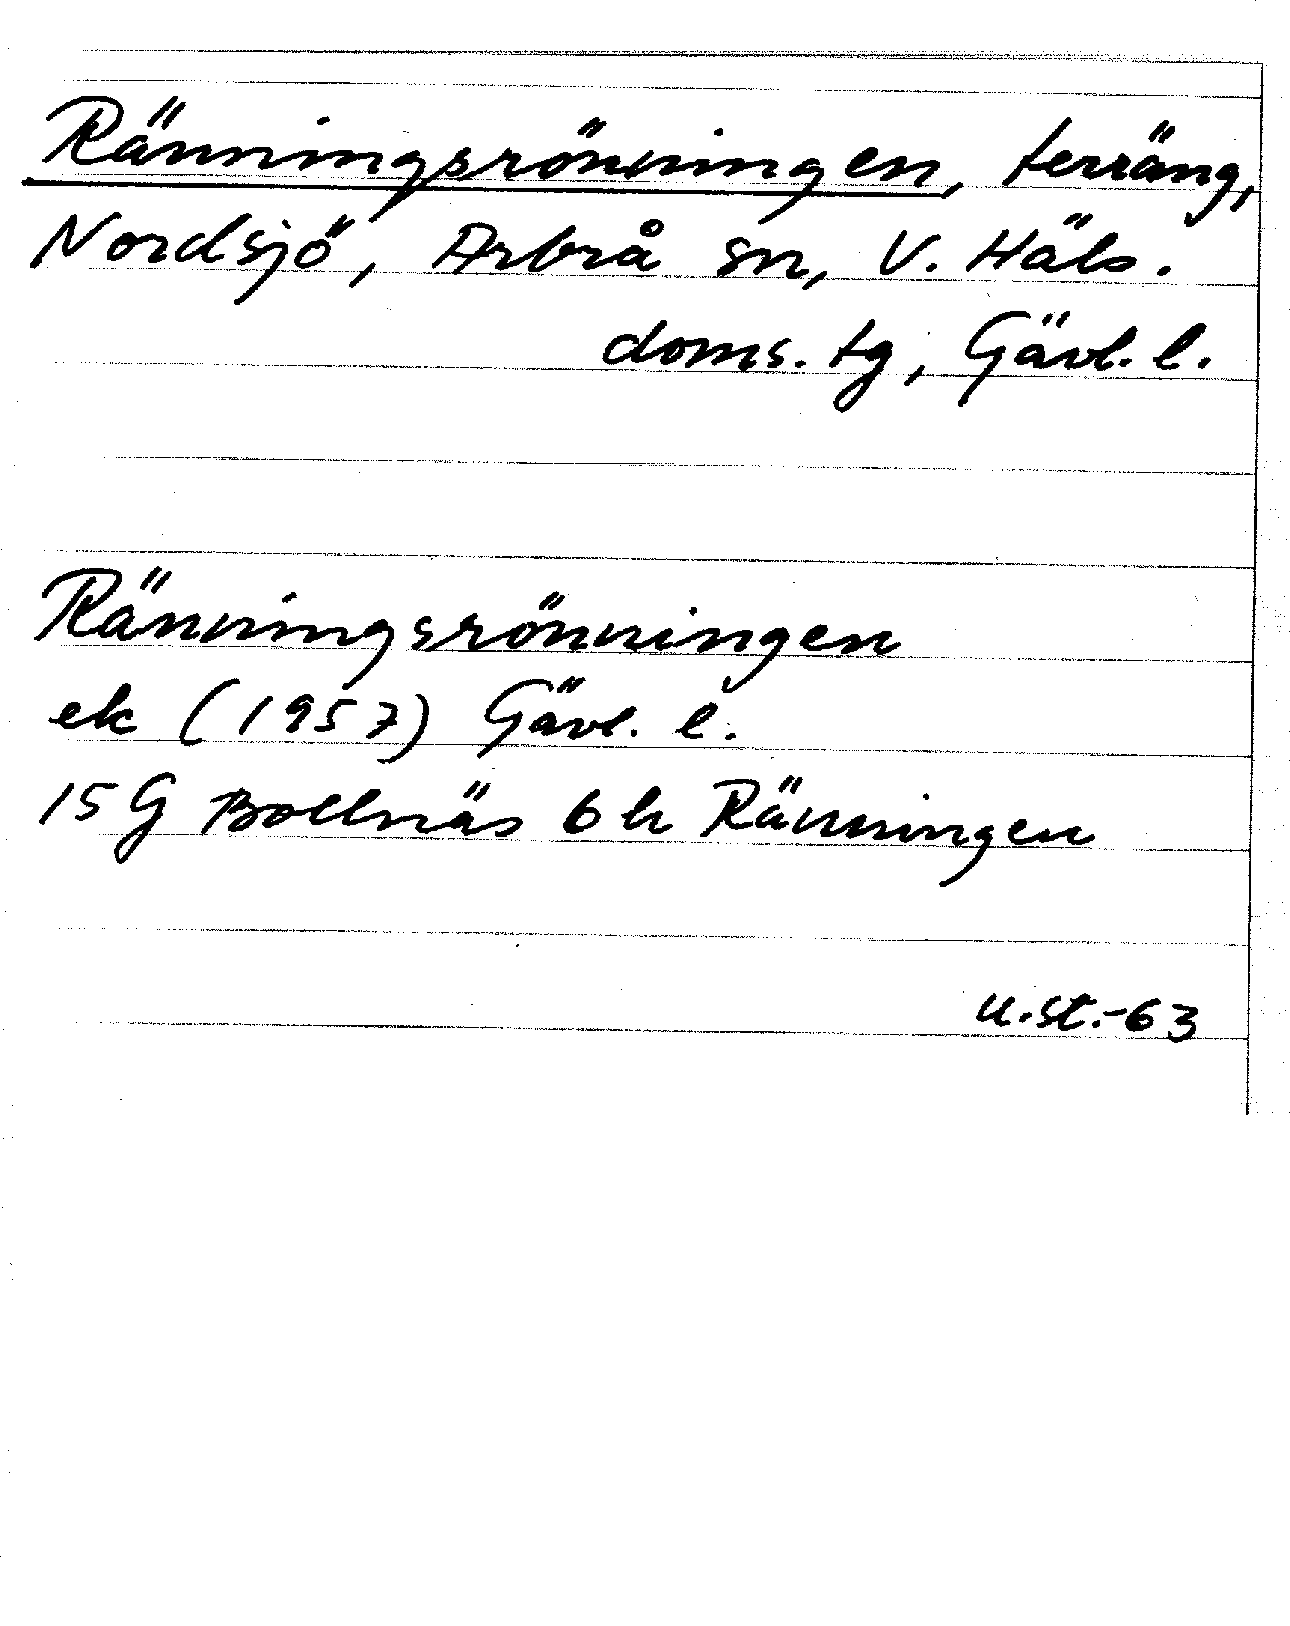 Ränningsrönningen, terräng,
Nordsjö, Arbrå sn, V. Häls.
doms. tg, Gävl. l.
Ränningsrönningen
ek (1957) Gävl. l.
15 G Bollnäs 6 h Ränningen
u.st.-63